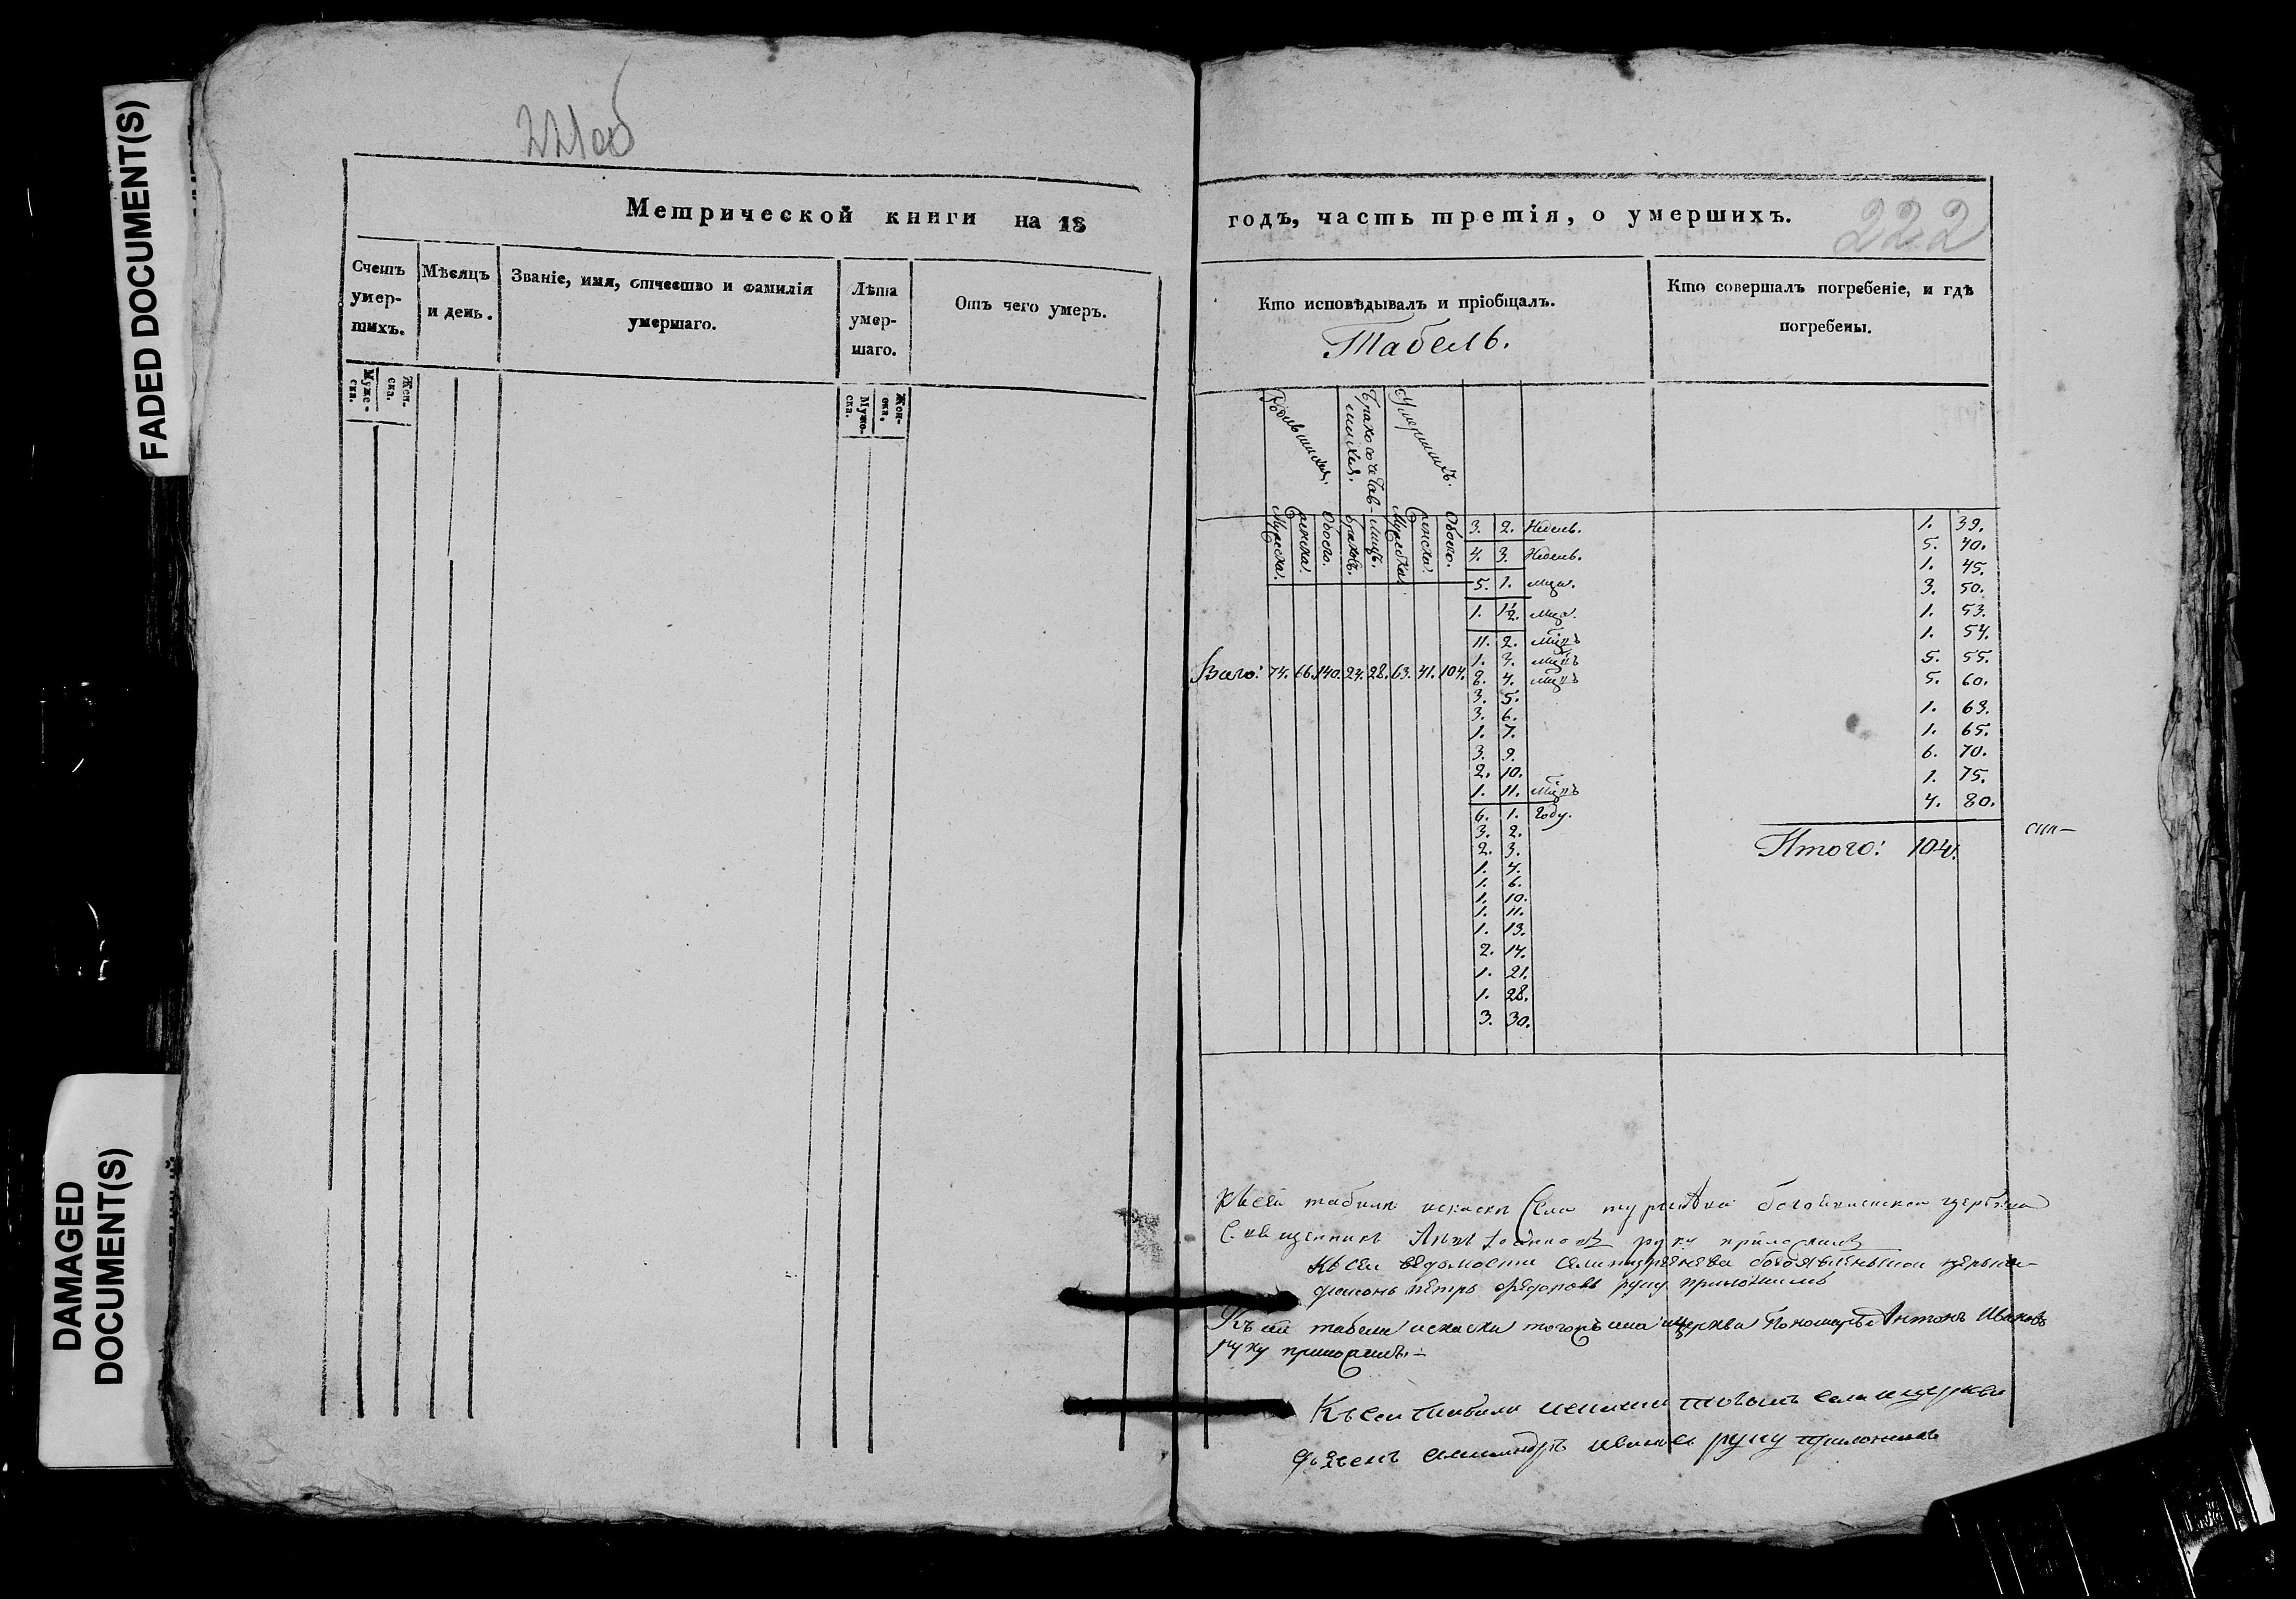 FADED DOCUMENT(S)
DAMAGED
DOCUMENT(S)
221об
Метрической книги на 18
Счетъ умер-шихъ.
Мѣсяцъ и день.
Званіе, имя, отчество и фамилія умершаго.
Лѣта умер-шаго.
Отъ чего умеръ.
Муже-ска.
Жен-ска.
Муже-ска.
Жен-ска.
222
годъ, часть третія, о умершихъ.
Кто исповѣдывалъ и пріобщалъ.
Кто совершалъ погребеніе, и гдѣ
погребены.
Табель.
Родившихся.
Бракосочетав-шихся.
Умершихъ.
Мужеска.
Женска.
Обоего.
Браковъ.
Лицъ.
Мужеска.
Женска.
Обоего.
Всего: 74. 66. 140. 24. 28. 63. 41. 104.
3. 2. Недель.
4. 3. Недель.
5. 1. мца.
1. 1½. мца.
11. 2. мцъ
1. 3. мцъ
8. 4. мцъ
3. 5.
3. 6.
1. 7.
3. 9.
2. 10.
1. 11. мцъ
6. 1. Году.
3. 2.
2. 3.
1. 4.
1. 6.
1. 10.
1. 11.
1. 13.
2. 14.
1. 21.
1. 28.
3. 30.
1. 39.
5. 40.
1. 45.
3. 50.
1. 53.
1. 54.
5. 55.
5. 60.
1. 63.
1. 65.
6. 70.
1. 75.
4. 80.
Итого: 104.
Къ сей табели села церкви
Священникъ руку приложилъ
Къ сей ведомости церкви
диаконъ петръ федоровъ руку приложилъ
Къ сей табели церкви Пономарь Антонъ Ивановъ
руку приложилъ.
Къ сей табели села церкви
руку приложилъ